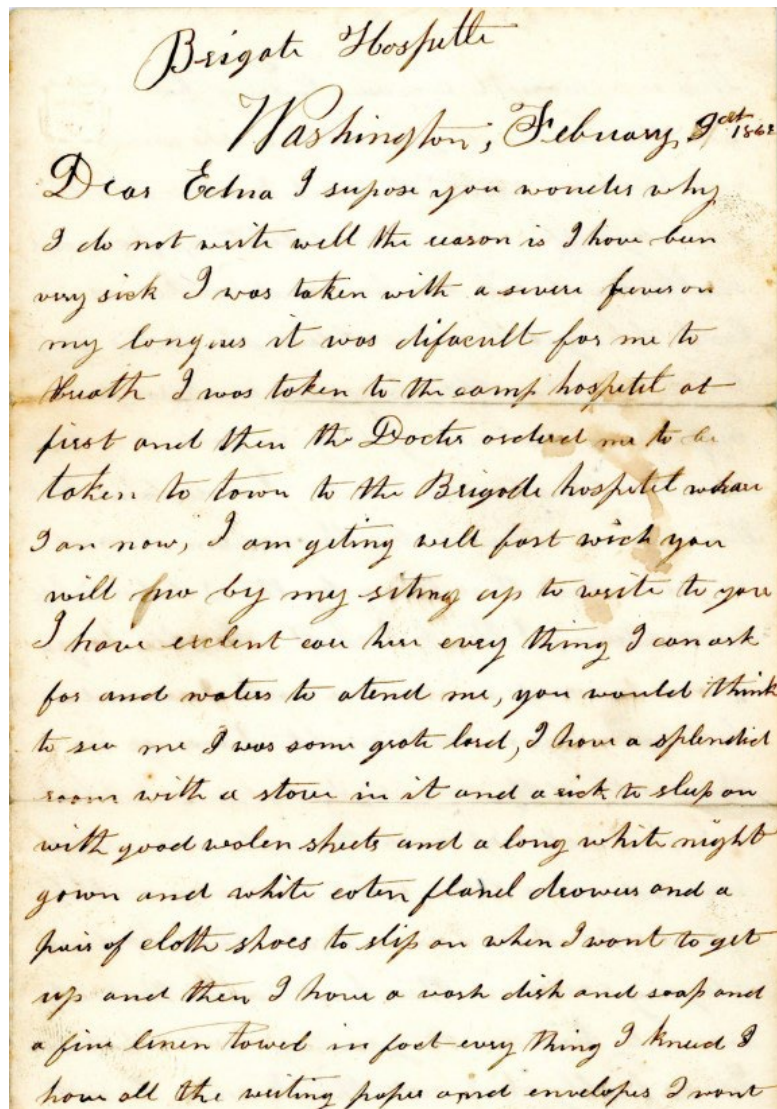 Brigate Hospettle
Washington, February 9 1862
Dear Edna I supose you wonder why
I do not write well the reason is I have been
very sick I was taken with a severe feveron
my longues it was difacult for me to
breath I was taken to the camp hospetel at
first and then the Docter ordered me to be
taken to town to the Brigade hospetel whare
I an now, I am geting well fast wich you
will by my siting up to write to you
I have exelent care here every thing I can ask
for and waters to atend me, you would think
to see me I was some grate lord, I have a splendid
room with a stove in it and a to sleep on
with good wolen sheets and a long white night
gown and white coten flanel drowers and a
pair of cloth shoes to slip on when I want to get
up and then I have a wash dish and soap and
a fine linen towel in fact every thing I kneed I
have all the writing paper and envelopes I want